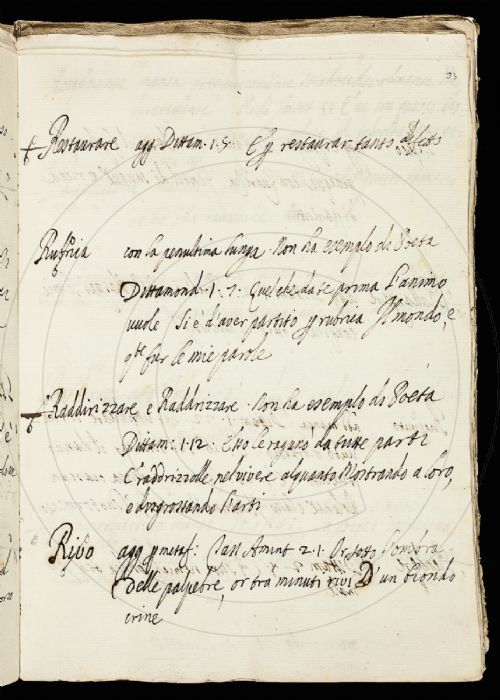 Restaurare agg. Dittam. 1. 5. E p restaurar tanto difetto
Rubrica con la penultima lunga. Non ha esempio di Poeta
Dittamond. 1. 7. Quel che dare prima l'animo
vuole Si è d'aver partito p rubrica Il mondo, e
fur le mie parole
Raddirizzare e Raddrizzare. Non ha esempio di Poeta
Dittam: 1. 12. Costo le raguno da tutte parti
E raddrizzolle nel vivere alquanto Mostrando a loro,
e dirozzando l'arti
Rivo agg. p metaf: Tass. Amint. 2. 1. Or sotto l'ombra
Delle palpebre, or tra minuti rivi D'un biondo
crine